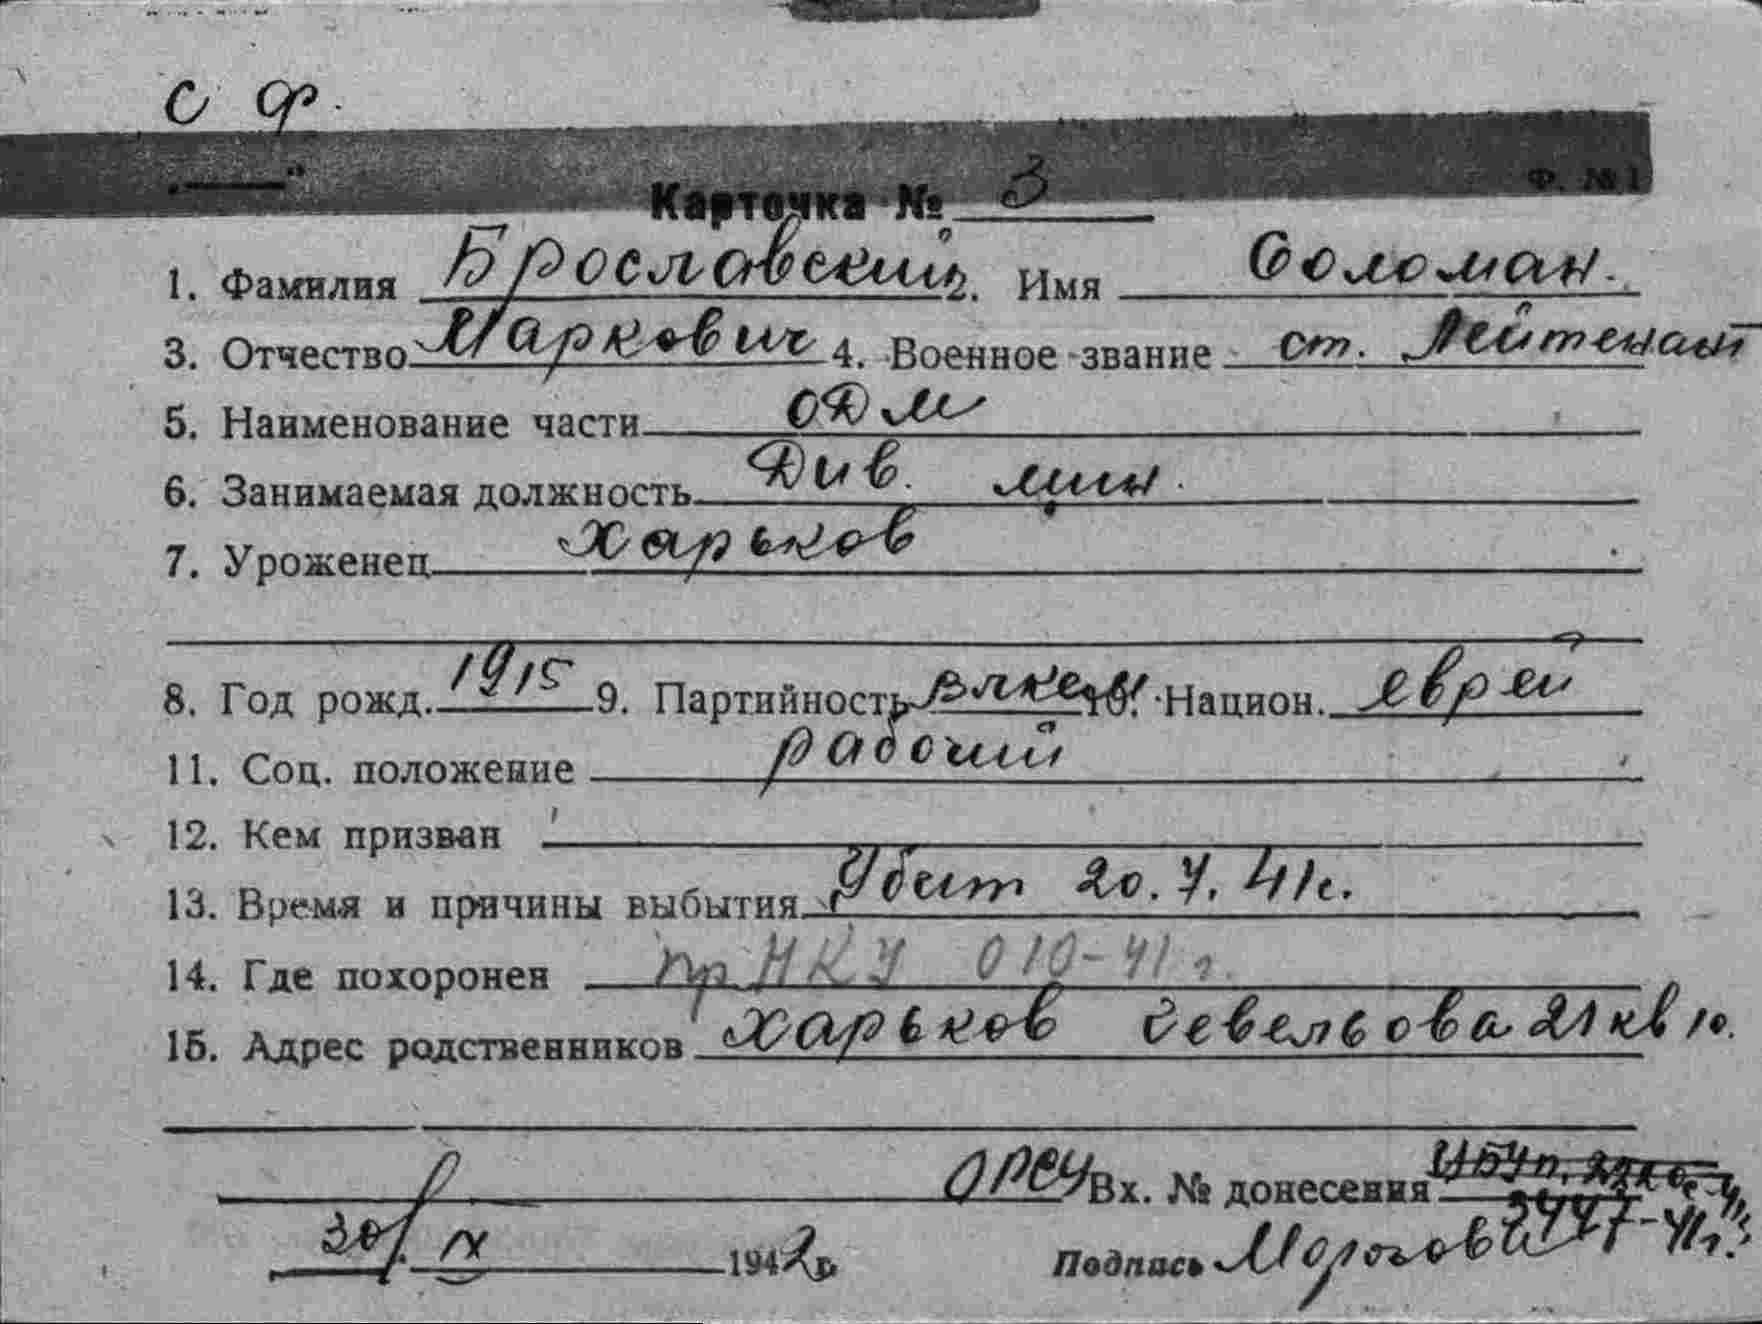 С Ф.
"——" Ф. № 1
Карточка № 3
1. Фамилия Брославский 2. Имя Соломан.
3. Отчество Маркович 4. Военное звание ст. Лейтенант
5. Наименование части ОДМ
6. Занимаемая должность Див. мин.
7. Уроженец Харьков
8. Год рожд. 1915 9. Партийность ВЛКСМ 10. Национ. еврей
11. Соц. положение рабочий
12. Кем призван
13. Время и причины выбытия Убит 20.7.41г.
14. Где похоронен пр НКУ 010-41 г.
15. Адрес родственников Харьков 21 кв 10.
ОРСУ Вх. № донесения
30/IX 1942 г.
Подпись